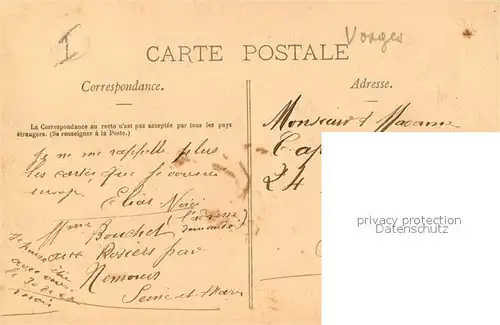 I
Vosges
CARTE POSTALE
Correspondance.
Adresse.
La Correspondance au recto n'est pas acceptée par tous les pays
étrangers. (Se renseigner à la Poste.)
Je ne me rappelle plus
les cartes que je vous ai
Elias Voici
(l'adresse
Mme Bouchet
aux Rosiers par
Nemours
Seine-et-Marne
avec vous
Monsieur & Madame
Cap
24
privacy protection
watermark